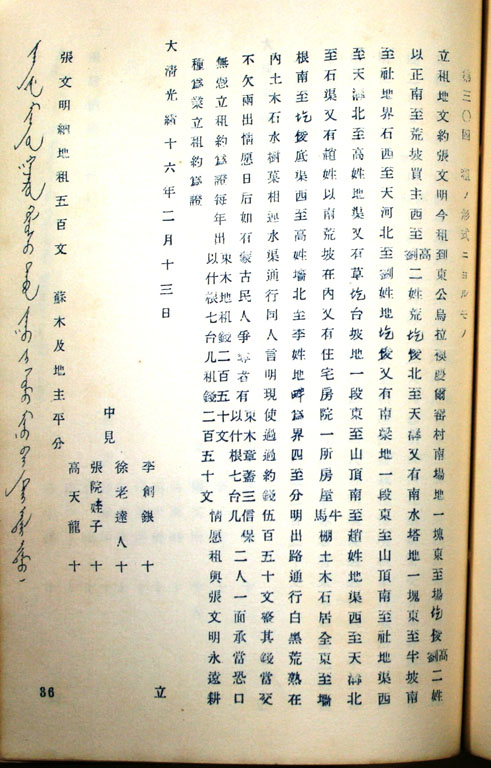 第三〇四 租ノ形式ニヨルモノ
立租地文約張文明今租到東公烏拉襖設爾審村南場地一塊東至場圪俊高劉二姓
以正南至荒坡買主西至高劉二姓荒圪俊北至天溝又有南水塔地一塊東至半坡南
至社地界石西至天河北至劉姓地圪俊又有南梁地一段東至山頂南至社地渠西
至天溝北至高姓地渠又有草圪台坡地一段東至山頂南至趙姓地渠西至天溝北
至石渠又有趙姓以南荒坡在內又有住宅房院一所房屋牛馬棚土木石居全東至墻
根南至圪俊底渠西至高姓墻北至李姓地畔爲界四至分明出路通行白黑荒熟在
內土木石水樹菓相連水渠通行同人言明現使過過約錢伍百五十文齊其錢當交
不欠兩出情愿日后如有蒙古民人爭者有東木章蓋三信保以什根七台几二人一面承當恐口
無憑立租約爲證每年出東木地租錢二百五十文以什根七台几租錢二百五十文情愿租與張文明永遠耕
種爲業立租約爲證
大淸光緖十六年二月十三日
中見
李創銀 十
徐老達人 十
張院娃子 十
高天龍 十
立
張文明納地租五百文 蘇木及地主平分
86